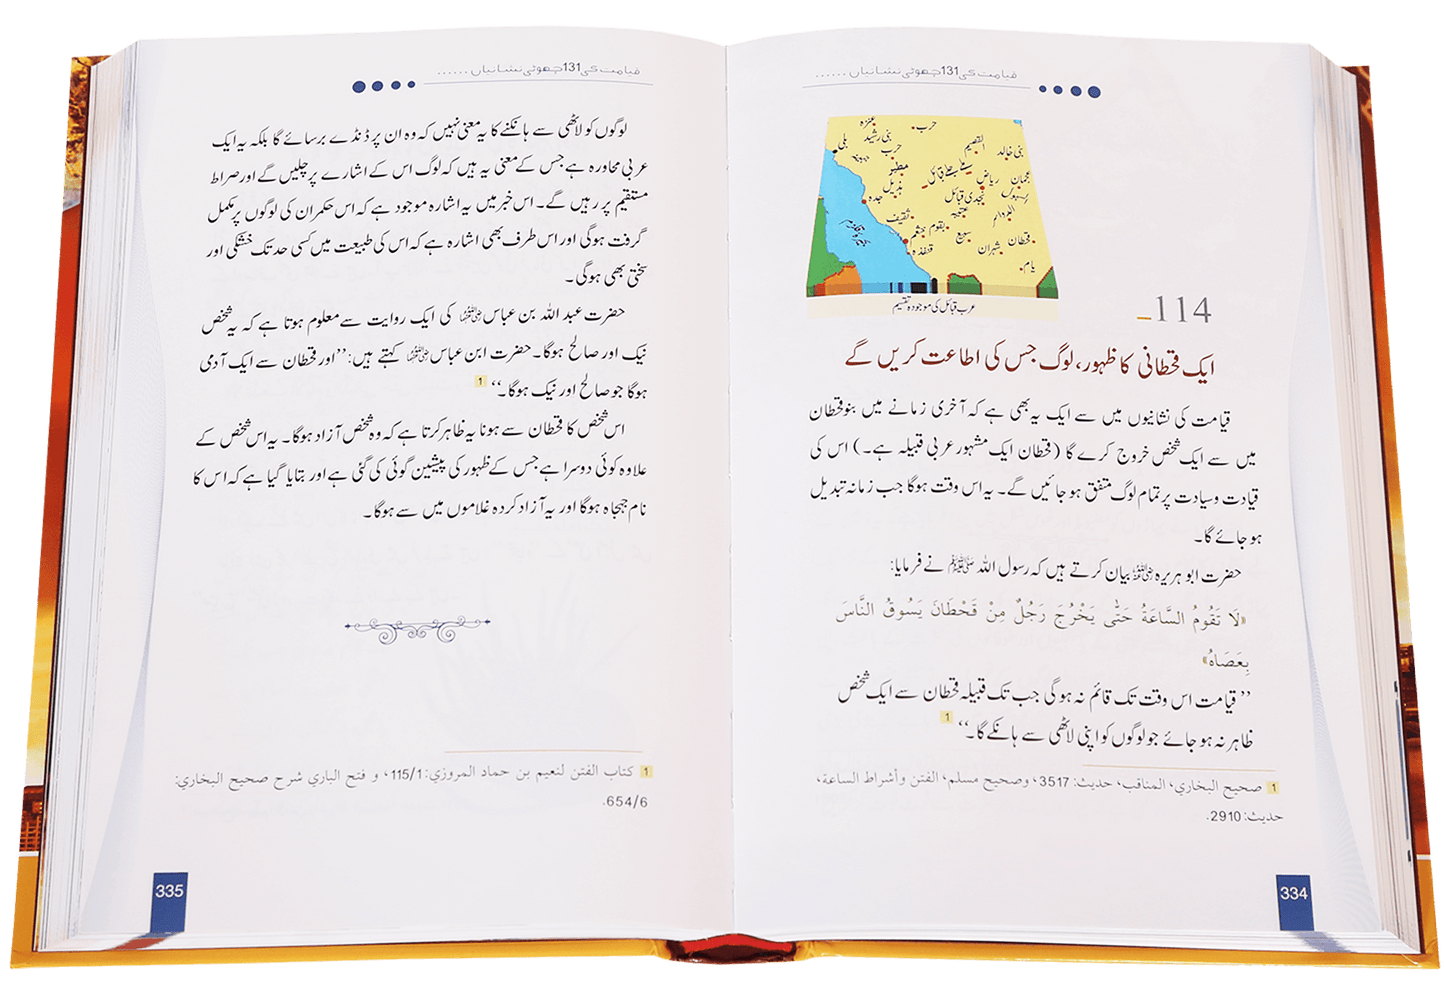 قیامت کی 131 چھوٹی نشانیاں ......
عنزہ
حرب
بنی رشید
بلی
حرب
القصیم
بنی خالد
مطیر
ہذیل
ریاض
عجمان
جدہ
نجدی قبائل
الدواسر
ثقیف
عتیبہ
بقوم
سبیع
قحطان
شہران
قنفذہ
یام
عرب قبائل کی موجودہ تقسیم
114
ایک قحطانی کا ظہور، لوگ جس کی اطاعت کریں گے
قیامت کی نشانیوں میں سے ایک یہ بھی ہے کہ آخری زمانے میں بنو قحطان
میں سے ایک شخص خروج کرے گا (قحطان ایک مشہور عربی قبیلہ ہے۔) اس کی
قیادت وسیادت پر تمام لوگ متفق ہو جائیں گے۔ یہ اس وقت ہوگا جب زمانہ تبدیل
ہو جائے گا۔
حضرت ابو ہریرہ رضی اللہ عنہ بیان کرتے ہیں کہ رسول اللہ ﷺ نے فرمایا:
«لَا تَقُومُ السَّاعَةُ حَتّٰى يَخْرُجَ رَجُلٌ مِنْ قَحْطَانَ يَسُوقُ النَّاسَ
بِعَصَاهُ»
”قیامت اس وقت تک قائم نہ ہوگی جب تک قبیلہ قحطان سے ایک شخص
ظاہر نہ ہو جائے جو لوگوں کو اپنی لاٹھی سے ہانکے گا۔“ 1
1 صحيح البخاري، المناقب، حديث: 3517، وصحيح مسلم، الفتن وأشراط الساعة،
حديث: 2910.
334
قیامت کی 131 چھوٹی نشانیاں ......
لوگوں کو لاٹھی سے ہانکنے کا یہ معنی نہیں کہ وہ ان پر ڈنڈے برسائے گا بلکہ یہ ایک
عربی محاورہ ہے جس کے معنی یہ ہیں کہ لوگ اس کے اشارے پر چلیں گے اور صراط
مستقیم پر رہیں گے۔ اس خبر میں یہ اشارہ موجود ہے کہ اس حکمران کی لوگوں پر مکمل
گرفت ہوگی اور اس طرف بھی اشارہ ہے کہ اس کی طبیعت میں کسی حد تک خشکی اور
سختی بھی ہوگی۔
حضرت عبد اللہ بن عباس رضی اللہ عنہما کی ایک روایت سے معلوم ہوتا ہے کہ یہ شخص
نیک اور صالح ہوگا۔ حضرت ابن عباس رضی اللہ عنہما کہتے ہیں: ”اور قحطان سے ایک آدمی
ہوگا جو صالح اور نیک ہوگا۔“ 1
اس شخص کا قحطان سے ہونا یہ ظاہر کرتا ہے کہ وہ شخص آزاد ہوگا۔ یہ اس شخص کے
علاوہ کوئی دوسرا ہے جس کے ظہور کی پیشین گوئی کی گئی ہے اور بتایا گیا ہے کہ اس کا
نام جہجاہ ہوگا اور یہ آزاد کردہ غلاموں میں سے ہوگا۔
1 كتاب الفتن لنعيم بن حماد المروزي: 115/1، و فتح الباري شرح صحيح البخاري:
654/6.
335